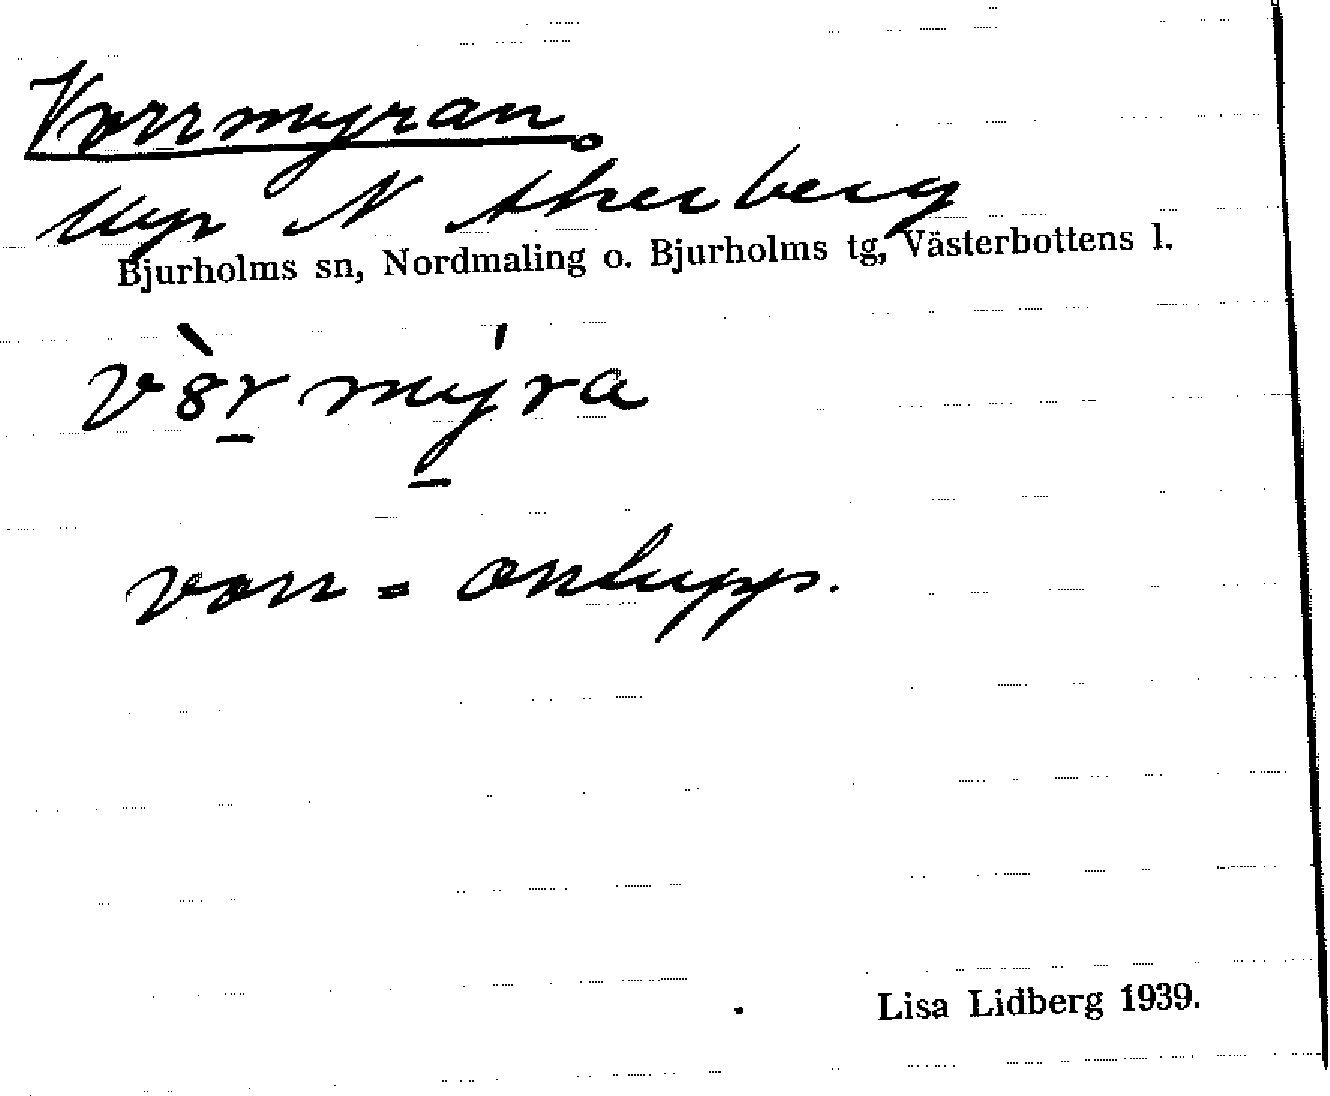 Vorrmyran.
Myr N Åkerberg
Bjurholms sn, Nordmaling o. Bjurholms tg, Västerbottens l.
v8̀r̲mý̲ra
vorr =
Lisa Lidberg 1939.